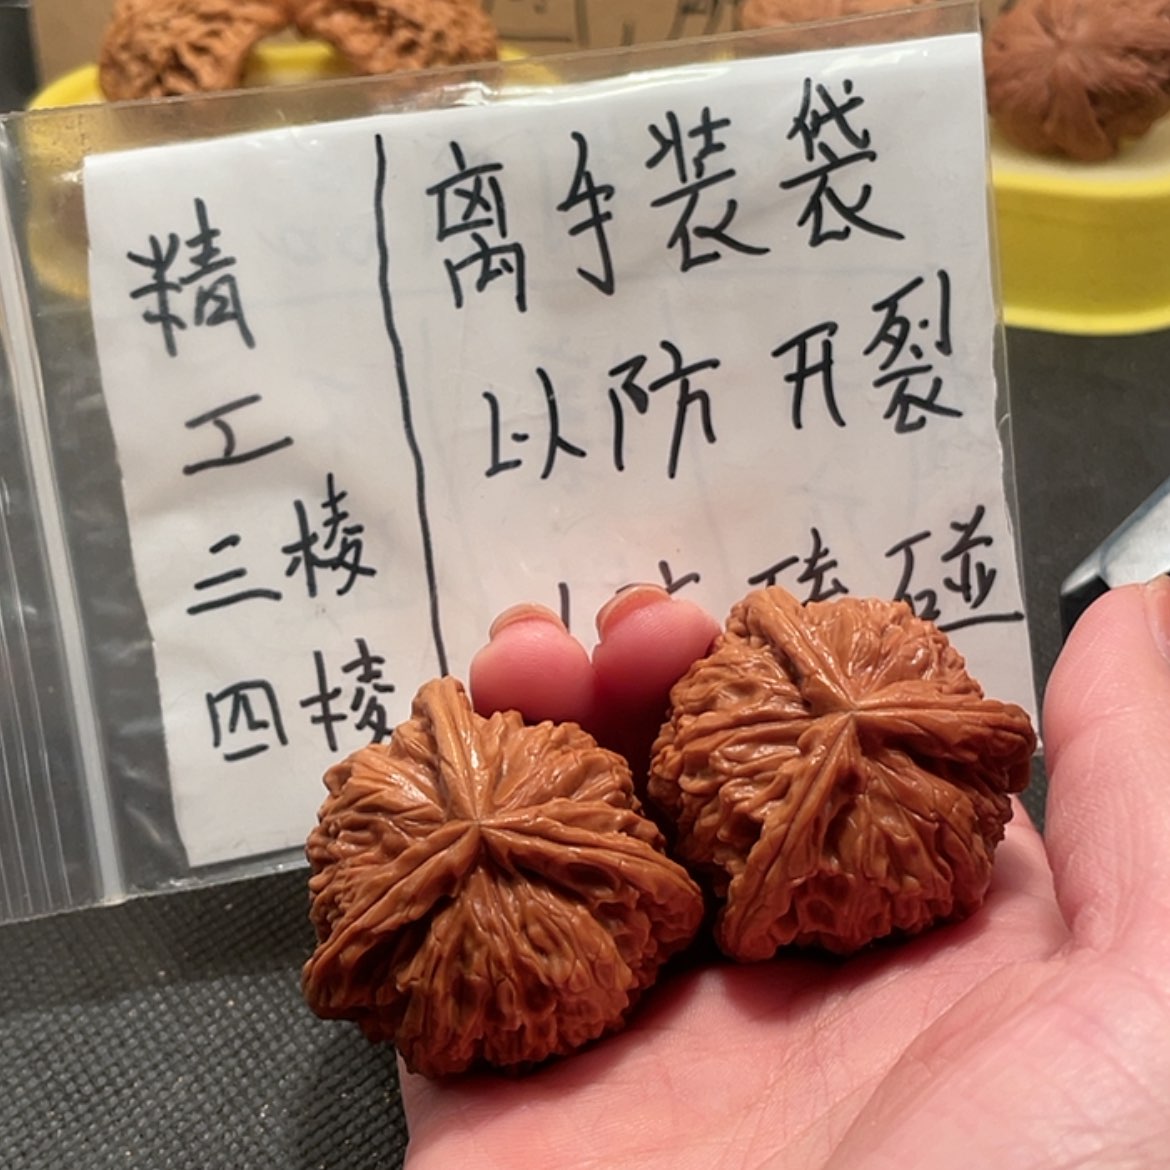 精
工
三棱
四棱
离手装袋
以防开裂
磕碰